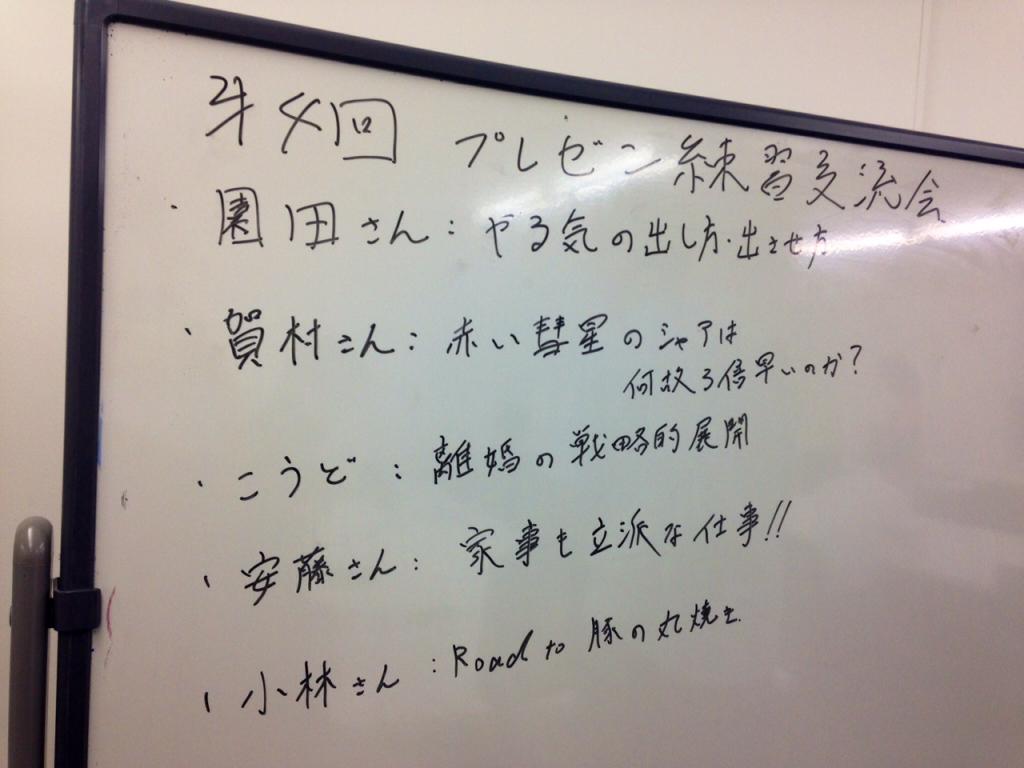 才4回 プレゼン練習交流会
・園田さん：やる気の出し方・出させ方
・賀村さん：赤い彗星のシャアは
何故3倍早いのか？
・こうど：離婚の戦略的展開
・安藤さん：家事も立派な仕事!!
・小林さん：Road to 豚の丸焼き